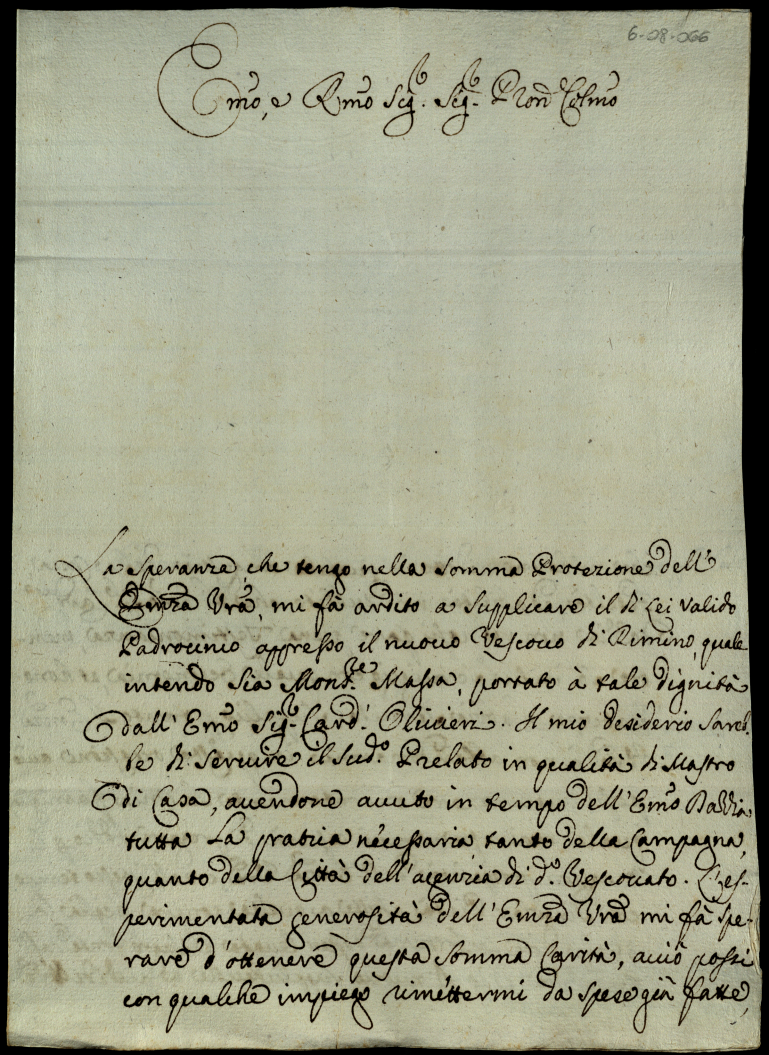 6-08-066
Emo, e Rmo Sig.r Sig.r Pron Colmo
La speranza, che tengo nella somma Protezione dell'
Emza Vra, mi fà ardito a supplicare il di Lei valido
Padrocinio appresso il nuovo Vescovo di Rimino, quale
intendo sia Mons.re Massa, portato à tale dignità
dall'Emo Sig.r Card.l Olivieri. Il mio desiderio sareb-
be di servire il sud.o Prelato in qualità di Mastro
di Casa, avendone avuto in tempo dell'Emo Badia
tutta la pratica necessaria tanto della Campagna,
quanto della Città dell'agenzia di d.o Vescovato. L'es-
perimentata generosità dell'Emza Vra mi fà spe-
rare d'ottenere questa somma Carità, acciò possi
con qualche impiego rimettermi da spese già fatte,